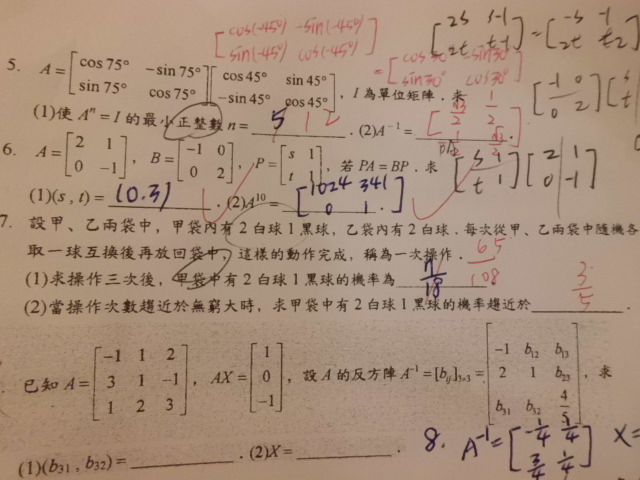 [cos(-45°) -sin(-45°) sin(-45°) cos(-45°)]
[2s s-1 2t t-1] = [-s -1 2t t2]
5. A = [cos 75° -sin 75° sin 75° cos 75°][cos 45° sin 45° -sin 45° cos 45°], I 為單位矩陣.求
= [cos30 sin30° sin30° cos30°]
(1)使 Aⁿ = I 的最小正整數 n = 5 12 .(2)A⁻¹ =
[-1 0 0 2][s t
6. A = [2 1 0 -1], B = [-1 0 0 2], P = [s 1 t 1], 若 PA = BP.求
[s 1 t 1][2 1 0 -1]
(1)(s , t) = (0.3) .(2)A¹⁰ = [1024 341 0 1] .
7. 設甲、乙兩袋中,甲袋內有 2 白球 1 黑球,乙袋內有 2 白球.每次從甲、乙兩袋中隨機各
取一球互換後再放回袋中,這樣的動作完成,稱為一次操作.
(1)求操作三次後,甲袋中有 2 白球 1 黑球的機率為 11/18 65/108
(2)當操作次數趨近於無窮大時,求甲袋中有 2 白球 1 黑球的機率趨近於 3/5
已知 A = [-1 1 2 3 1 -1 1 2 3], AX = [1 0 -1], 設 A 的反方陣 A⁻¹ = [bᵢⱼ]₃×₃ = [-1 b₁₂ b₁₃ 2 1 b₂₃ b₃₁ b₃₂ 4/5], 求
(1)(b₃₁ , b₃₂) = .(2)X = .
8. A⁻¹ = [-1/4 1/4 3/4 1/4] X=